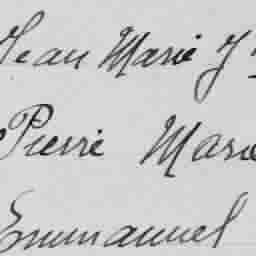 Jean Marie J
Pierre Marie
Emmanuel